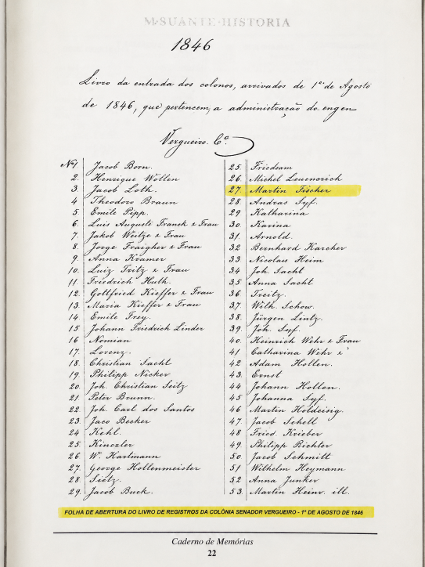 MSUANTE-HISTORIA
1846
Livro da entrada dos colonos, arrivados de 1º de Agosto
de 1846, que pertencem, a administração do engen
Vergueiro. Cº
Nº1. Jacob Born.
2. Henrique Wöllen
3. Jacob Loth.
4 Theodoro Braun
5 Emile Pipp.
6. Luis Auguste Franck & Frau
7. Jakob Weitze & Frau
8. Jorge Fraigher & Frau
9. Anna Krämer
10. Luiz Tritz & Frau
11. Friedrich Huth.
12. Gottfried Kieffer & Frau
13. Maria Kieffer & Frau
14. Emile Frey.
15. Johann Friedrich Linder
16 Nomian
17. Lorenz.
18. Christian Sacht
19. Philipp Nicker
20. Joh. Christian Seitz
21 Peter Brunn.
22. Joh Carl dos Santos
23 Jaco Becker
24. Kehl.
25. Kinezler
26. W. Hartmann
27. George Hollenmeister
28. Seitz.
29. Jacob Buck.
25. Friedsam
26. Michel Leuenroich
27. Martin Fischer
28. Andras Syf.
29. Katharina
30. Karina
31. Arnold.
32 Bernhard Karcher
33. Nicolau Heim
34 Joh Sacht
35. Anna Sacht
36. Treitz.
37. Wilh. Schow.
38. Jürgen Lintz.
39. Joh. Syf.
40. Heinrich Wehr & Frau
41 Catharina Wehr &
42 Adam Hollen.
43. Ernst
44. Johann Hollen.
45. Johanna Syf.
46 Martin Holdzinig.
47. Jacob Schell
48 Fried. Kriebor
49. Philipp Richter
50. Jacob Schmitt
51 Wilhelm Heymann
52 Anna Junker
53. Martin Heinr. ill.
FOLHA DE ABERTURA DO LIVRO DE REGISTROS DA COLÔNIA SENADOR VERGUEIRO - 1º DE AGOSTO DE 1846
Caderno de Memórias
22